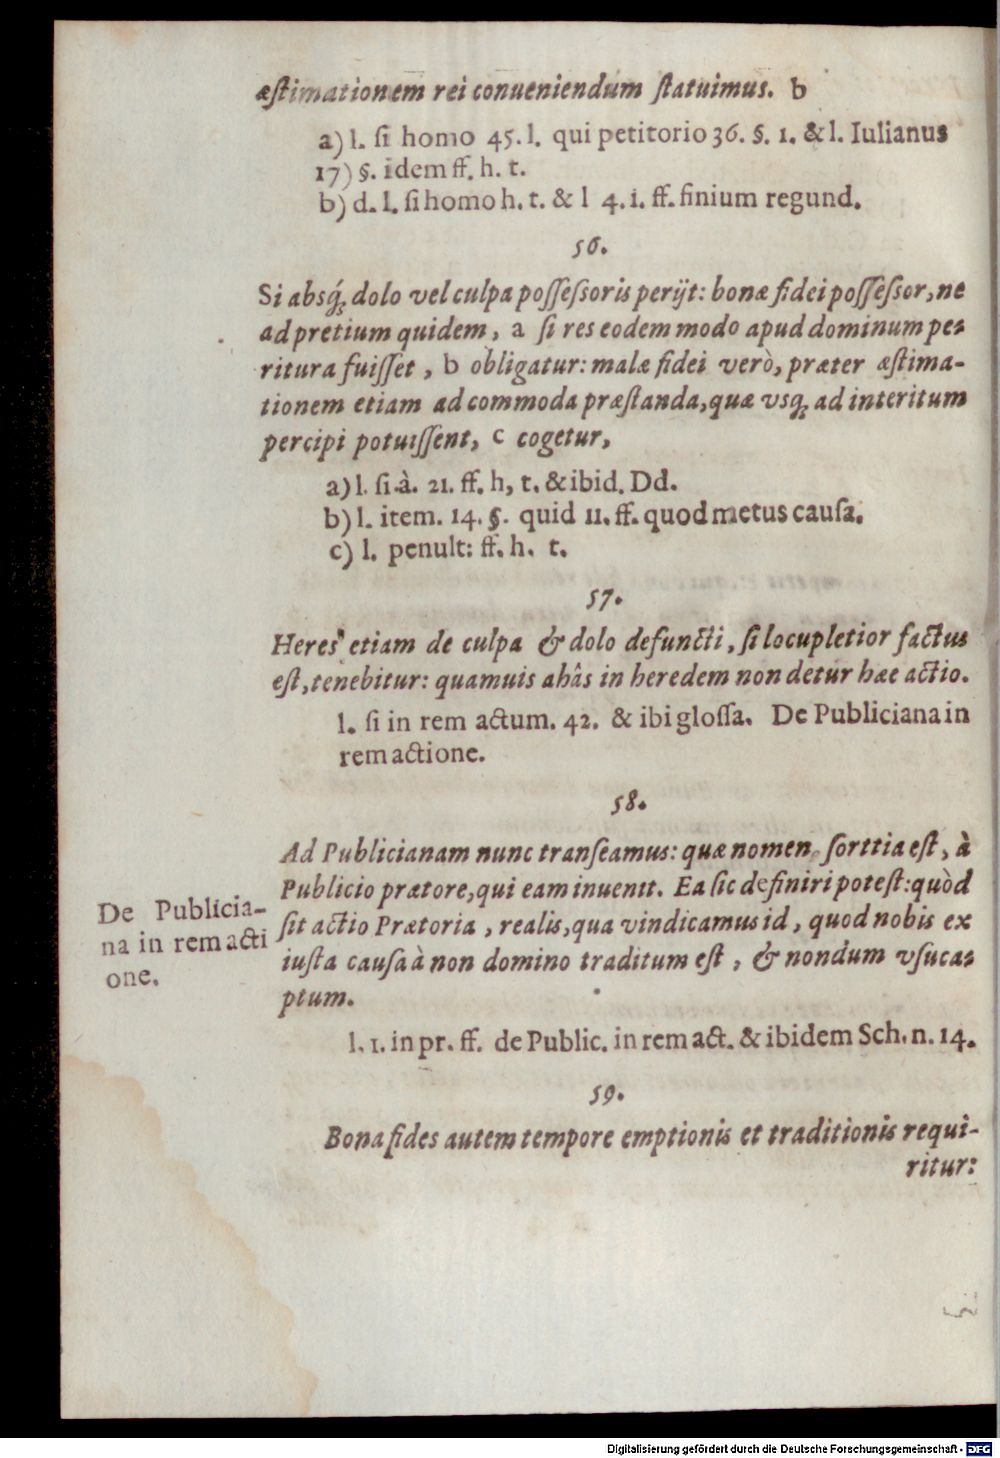 æſtimationem rei conueniendum ſtatuimus. b
a) l. ſi homo 45. l. qui petitorio 36. §. 1. & l. Iulianus
17) §. idem ff. h. t.
b) d. l. ſi homo h. t. & l 4. i. ff. finium regund.
56.
Si absq́ꝫ dolo vel culpa poſſeſsoris perijt: bonæ fidei poſſeſsor, ne
ad pretium quidem, a ſi res eodem modo apud dominum pe-
ritura fuiſſet, b obligatur: malæ fidei verò, præter æſtima-
tionem etiam ad commoda præſtanda, quæ vsqꝫ ad interitum
percipi potuiſſent, c cogetur,
a) l. ſi à. 21. ff. h, t. & ibid. Dd.
b) l. item. 14. §. quid 11. ff. quod metus cauſa.
c) l. penult: ff. h. t.
57.
Heres etiam de culpa & dolo defuncti, ſi locupletior factus
eſt, tenebitur: quamuis ahâs in heredem non detur hæc actio.
l. ſi in rem actum. 42. & ibi gloſſa. De Publiciana in
rem actione.
58.
Ad Publicianam nunc tranſeamus: quæ nomen ſorttia eſt, à
Publicio prætore, qui eam inuenit. Ea ſic definiri poteſt: quòd
ſit actio Prætoria, realis, qua vindicamus id, quod nobis ex
iuſta cauſa à non domino traditum eſt, & nondum vſuca-
ptum.
De Publicia-
na in rem acti
one.
l. 1. in pr. ff. de Public. in rem act. & ibidem Sch. n. 14.
59.
Bona fides autem tempore emptionis et traditionis requi-
ritur:
Digitalisierung gefördert durch die Deutsche Forschungsgemeinschaft - DFG